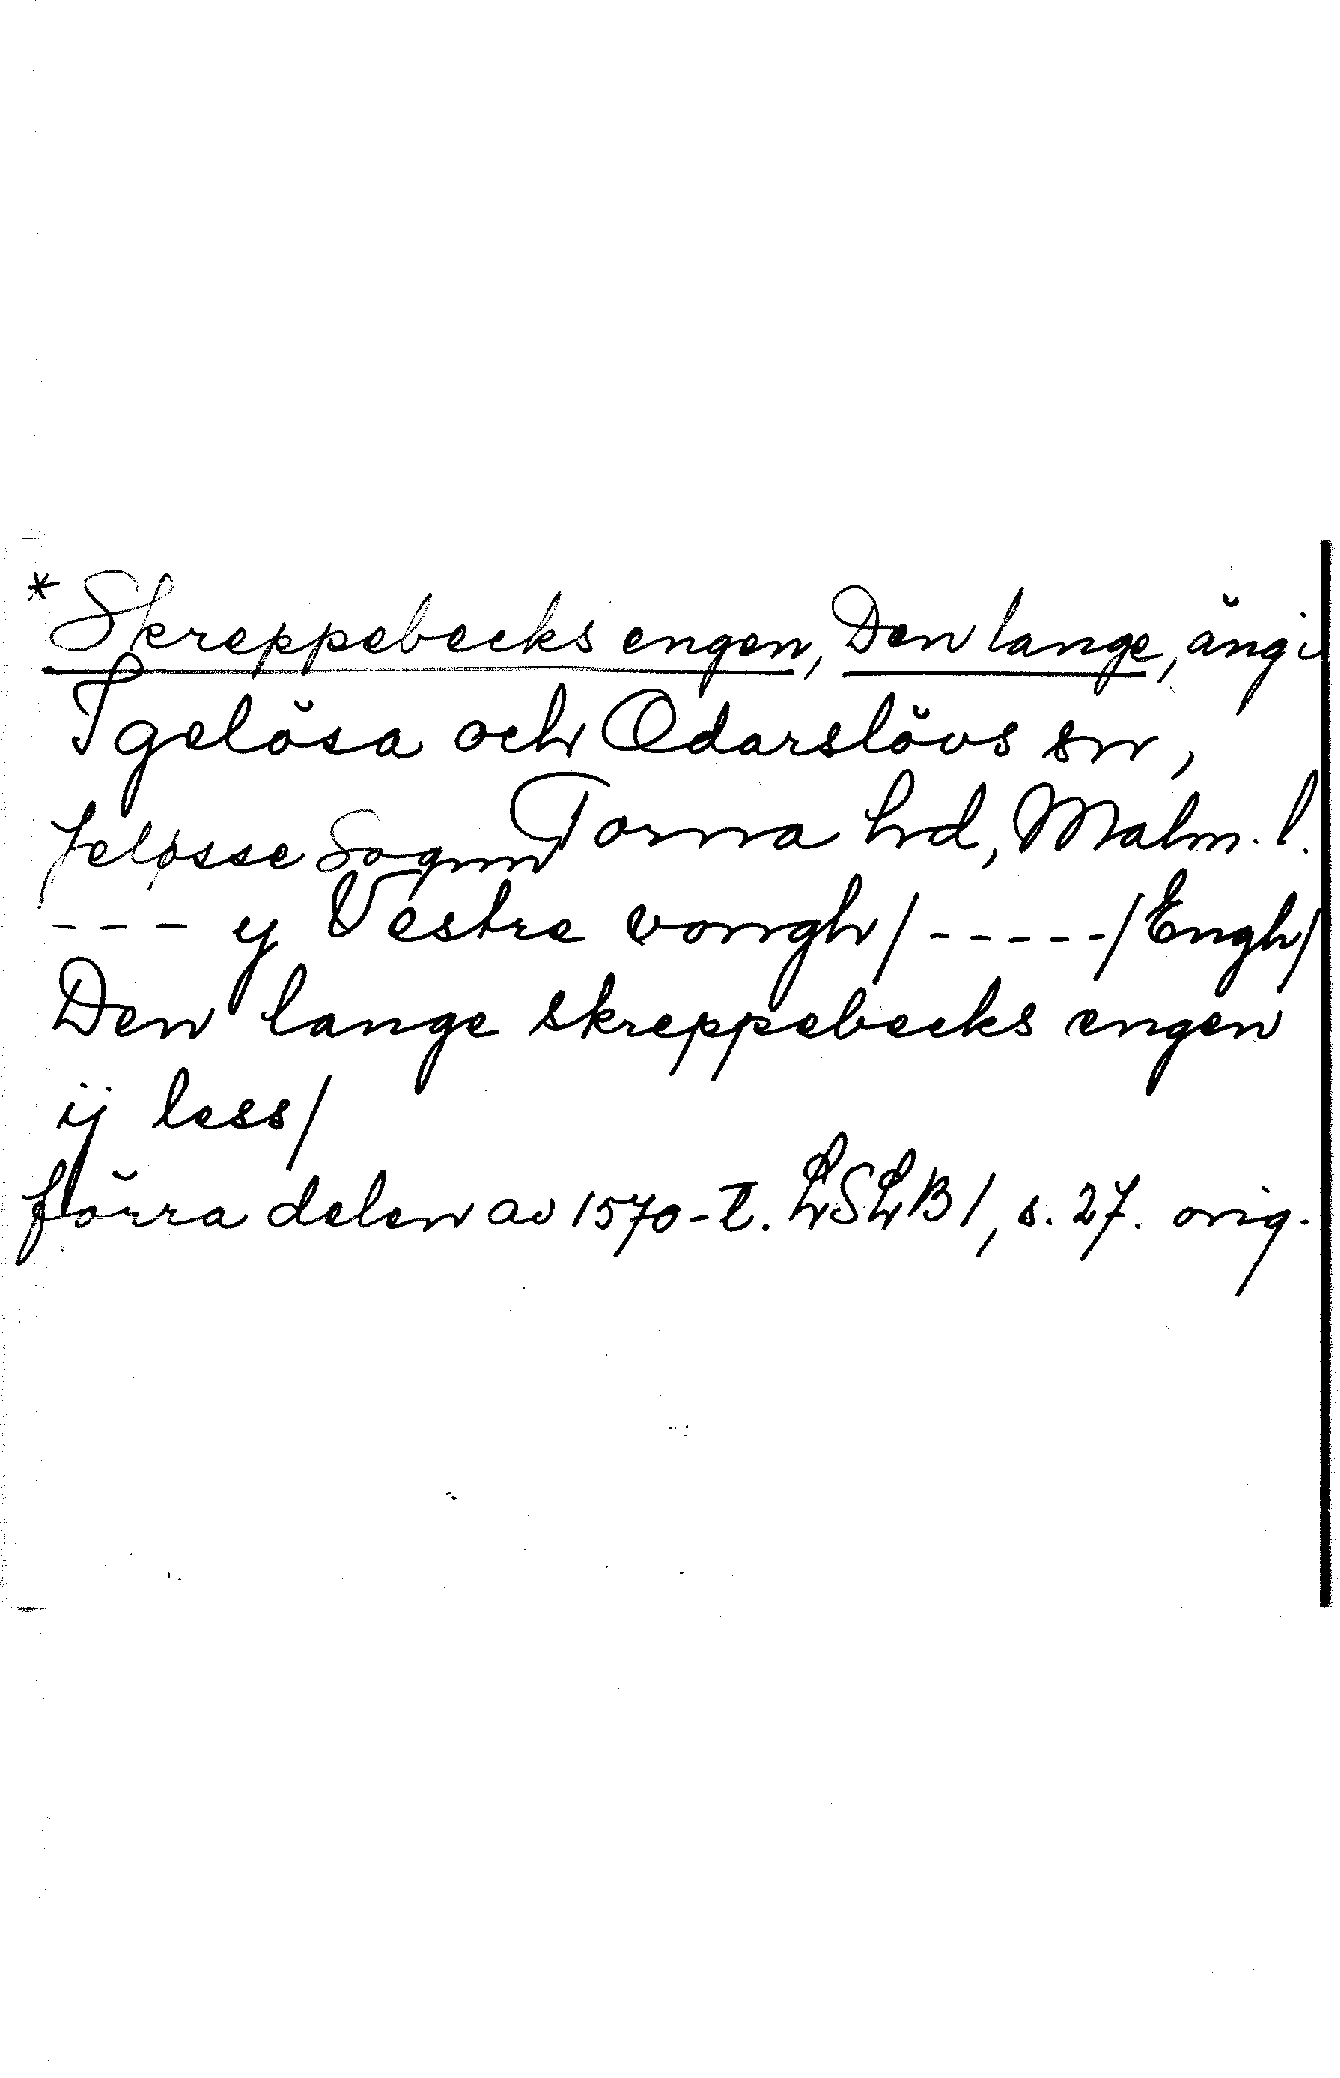 * Skreppebecks engen, Den lange, äng i
Igelösa och Odarslövs snr,
Jeløsse Sognn Torna hd, Malm. l.
--- y Vestre vongh/-----/Engh/
Den lange skreppebecks engen
ij less/
förra delen av 1570-t. LSLB 1, s. 27. orig.